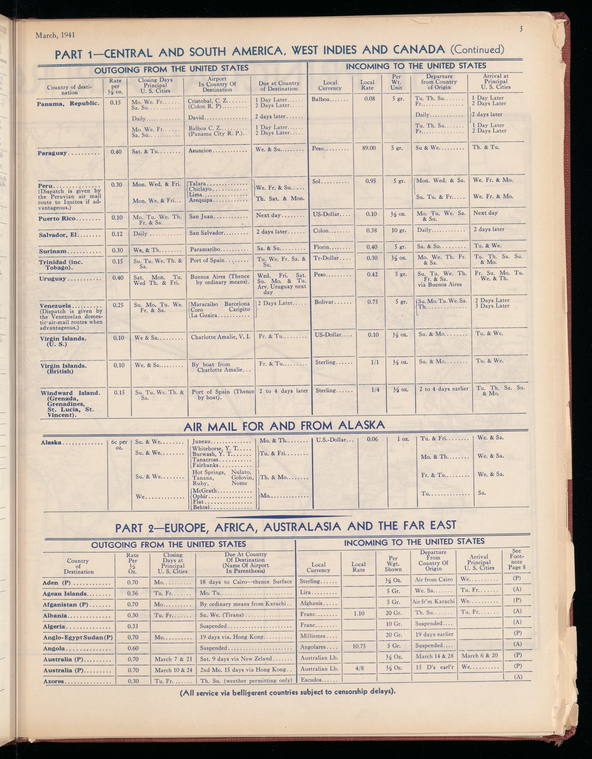 March, 1941
3
PART 1—CENTRAL AND SOUTH AMERICA, WEST INDIES AND CANADA (Continued)
OUTGOING FROM THE UNITED STATES INCOMING TO THE UNITED STATES
Country of desti-nation Rate per ½ oz. Closing Days Principal U. S. Cities Airport In Country Of Destination Due at Country of Destination Local Currency Local Rate Per Wt. Unit Departure from Country of Origin Arrival at Principal U. S. Cities
Panama, Republic. 0.15 Mo. We. Fr. Sa. Su. Cristobal, C. Z. (Colon R. P) 1 Day Later 2 Days Later Balboa 0.08 5 gr. Tu. Th. Su. Fr. 1 Day Later 2 Days Later
Daily David 2 days later Daily 2 days later
Mo. We. Fr. Sa. Su. Balboa C. Z. (Panama City R. P.) 1 Day Later 2 Days Later Tu. Th. Su. Fr. 1 Day Later 2 Days Later
Paraguay 0.40 Sat. & Tu. Asuncion We. & Su. Peso 89.00 5 gr. Su & We. Th. & Tu.
Peru 0.30 Mon. Wed. & Fri. Talara Chiclayo Lima We. Fr. & Su. Sol 0.95 5 gr. Mon. Wed. & Sa. We. Fr. & Mo.
(Dispatch is given by the Peruvian air mail route to Iquitos if ad-vantageous.)
Mon. We. & Fri. Arequipa Th. Sat. & Mon. Su. Tu. & Fr. We. Fr. & Mo.
Puerto Rico 0.10 Mo. Tu. We. Th. Fr. & Sa. San Juan Next day US-Dollar 0.10 ½ oz. Mo. Tu. We. Sa. & Su. Next day
Salvador, El 0.12 Daily San Salvador 2 days later Colon 0.38 10 gr. Daily 2 days later
Surinam 0.30 We. & Th. Paramaribo Sa. & Su. Florin 0.40 5 gr. Sa. & Su. Tu. & We.
Trinidad (inc. Tobago). 0.15 Su. Tu. We. Th. & Sa. Port of Spain Tu. We. Fr. Sa. & Su. Tr-Dollar 0.30 ½ oz. Mo. We. Th. Fr. & Sa. Tu. Th. Sa. Su. & Mo.
Uruguay 0.40 Sat. Mon. Tu. Wed Th. & Fri. Buenos Aires (Thence by ordinary means). Wed. Fri. Sat. Su. Mo. & Tu. Arr. Uruguay next day Peso 0.42 5 gr. Su. Tu. We. Th. Fr. & Sa. via Buenos Aires Fr. Su. Mo. Tu. We. & Th.
Venezuela 0.25 Su. Mo. Tu. We. Fr. & Sa. Maracaibo Barcelona Coro Caripito La Guaira 2 Days Later Bolivar 0.75 5 gr. Su. Mo. Tu. We. Sa. Th. 2 Days Later 2 Days Later
(Dispatch is given by the Venezuelan domes-tic air mail routes when advantageous.)
Virgin Islands. (U. S.) 0.10 We & Sa. Charlotte Amalie, V. I. Fr. & Tu. US-Dollar 0.10 ½ oz. Su. & Mo. Tu. & We.
Virgin Islands. (British) 0.10 We. & Sa. By boat from Charlotte Amalie Fr. & Tu. Sterling 1/1 ½ oz. Su. & Mo. Tu. & We.
Windward Island. (Grenada, Grenadines, St. Lucia, St. Vincent). 0.15 Su. Tu. We. Th. & Sa. Port of Spain (Thence by boat). 2 to 4 days later Sterling 1/4 ½ oz. 2 to 4 days earlier Tu. Th. Sa. Su. & Mo.
AIR MAIL FOR AND FROM ALASKA
Alaska 6c per oz. Su. & We. Juneau Mo. & Th. U.S.-Dollar 0.06 1 oz. Tu. & Fri. We. & Sa.
Su. & We. Whitehorse, Y. T. Burwash, Y. T. Tanacross Fairbanks Tu. & Fri. Mo. & Th. We. & Sa.
Su. & We. Hot Springs, Nulato, Tanana, Golovin, Ruby, Nome Th. & Mo. Fr. & Tu. We. & Sa.
We. McGrath Ophir Flat Bethel Mo. Tu. Sa.
PART 2—EUROPE, AFRICA, AUSTRALASIA AND THE FAR EAST
OUTGOING FROM THE UNITED STATES INCOMING TO THE UNITED STATES
Country of Destination Rate Per ½ Oz. Closing Days at Principal U. S. Cities Due At Country Of Destination (Name Of Airport In Parenthesis) Local Currency Local Rate Per Wgt. Shown Departure From Country Of Origin Arrival Principal U. S. Cities See Foot-note Page 8
Aden (P) 0.70 Mo. 18 days to Cairo—thence Surface Sterling ½ Oz. Air from Cairo We. (P)
Agean Islands 0.36 Tu. Fr. Mo. Tu. Lira 5 Gr. We. Sa. Tu. Fr. (A)
Afganistan (P) 0.70 Mo. By ordinary means from Karachi Afghania 5 Gr. Air fr'm Karachi We. (P)
Albania 0.30 Tu. Fr. Su. We. (Tirana) Franc 1.10 20 Gr. Th. Su. Tu. Fr. (A)
Algeria 0.33 Suspended Franc 10 Gr. Suspended (A)
Anglo-Egypt Sudan (P) 0.70 Mo. 19 days via. Hong Kong Milliemes 20 Gr. 19 days earlier (P)
Angola 0.60 Suspended Angolares 10.75 5 Gr. Suspended (A)
Australia (P) 0.70 March 7 & 21 Sat. 9 days via New Zeland Australian Lb. ½ Oz. March 14 & 28 March 6 & 20 (P)
Australia (P) 0.70 March 10 & 24 2nd Mo. 15 days via Hong Kong Australian Lb. 4/8 ½ Oz. 15 D's earl'r We. (P)
Azores 0.30 Tu. Fr. Th. Su. (weather permitting only) Escudos (A)
(All service via belligerent countries subject to censorship delays).